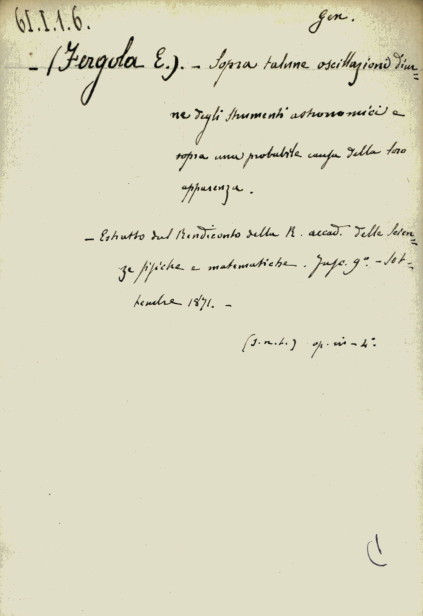 61.I.1.6.
Gen.
- (Fergola E.). - Sopra talune oscillazioni diur=
ne degli strumenti astronomici e
sopra una probabile causa della loro
apparenza.
- Estratto dal Rendiconto della R. accad. delle Scien=
ze fisiche e matematiche. Fasc. 9°. - Set=
tembre 1871. -
(s.n.t.) op. in - 4°.